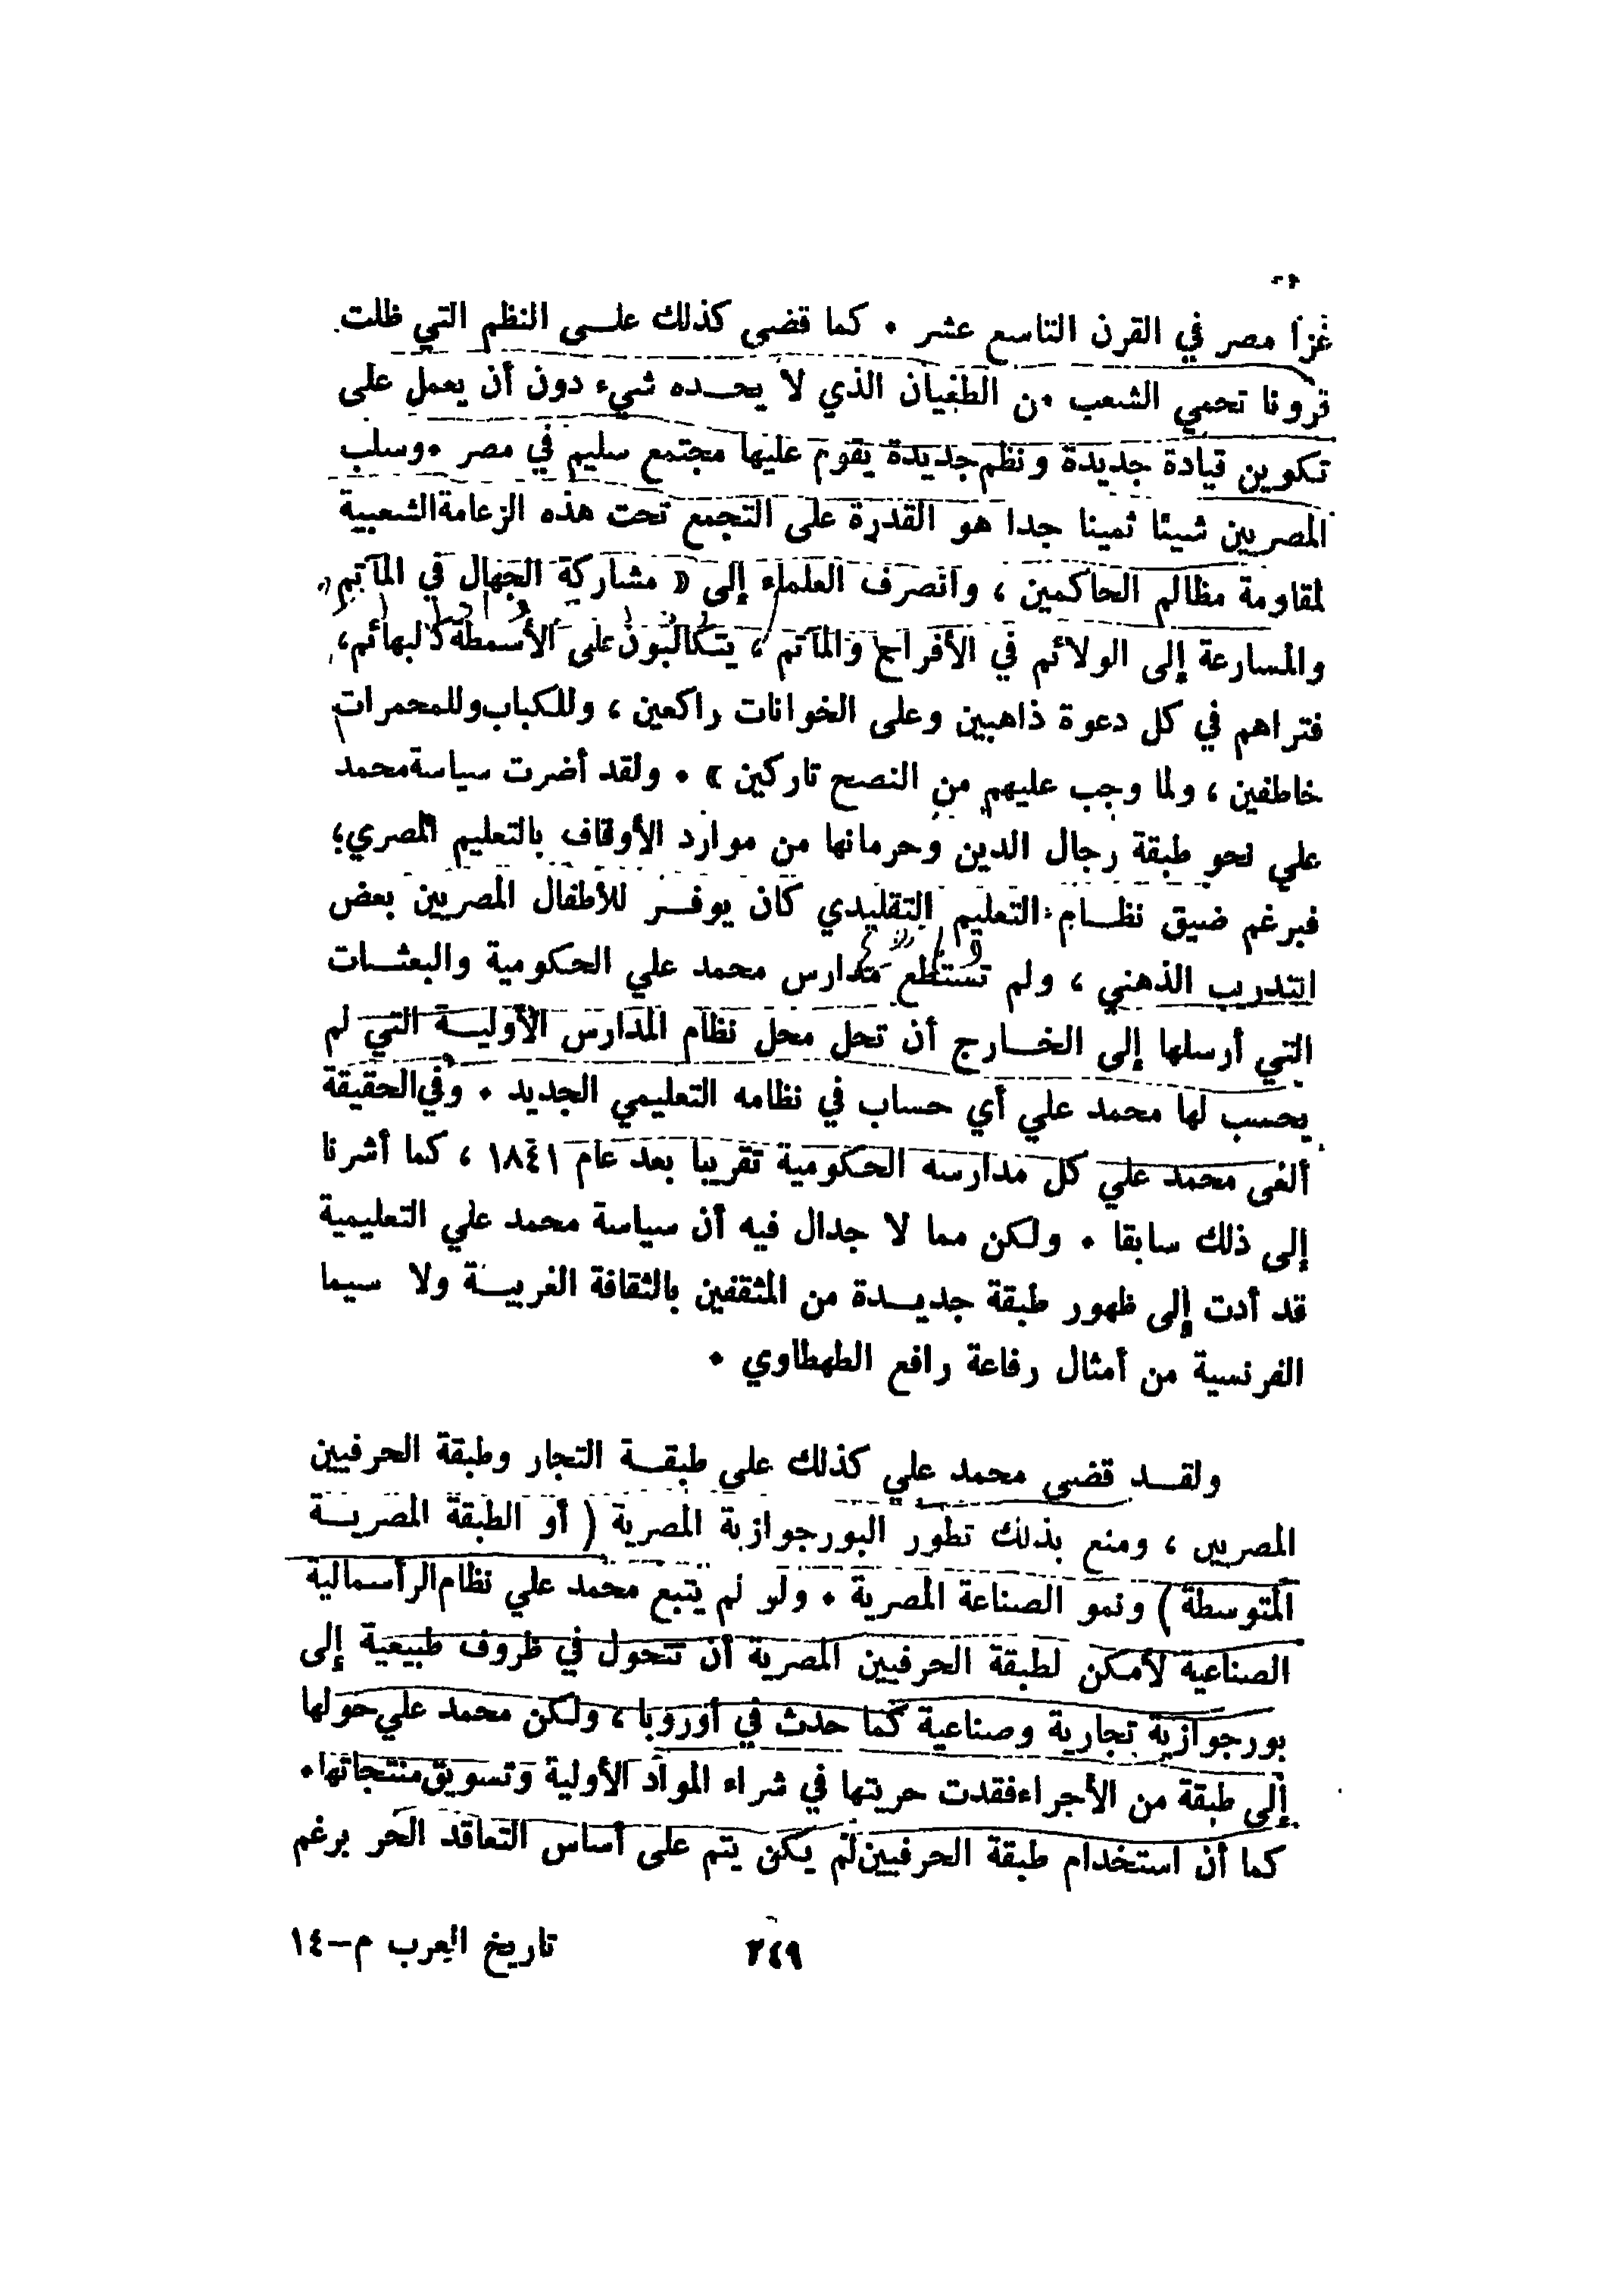 غزا مصر في القرن التاسع عشر . كما قضى كذلك على النظم التي ظلت
قرونا تحمي الشعب من الطغيان الذي لا يحده شيء دون أن يعمل على
تكوين قيادة جديدة ونظم جديدة يقوم عليها مجتمع سليم في مصر . وسلب
المصريين شيئا ثمينا جدا هو القدرة على التجمع تحت هذه الزعامة الشعبية
لمقاومة مظالم الحاكمين ، وانصرف العلماء إلى « مشاركة الجهال في المآتم ،
والمسارعة إلى الولائم في الأفراح والمآتم ، يتكالبون على الأسمطة كالبهائم ،
فتراهم في كل دعوة ذاهبين وعلى الخوانات راكعين ، وللكباب وللمحمرات
خاطفين ، ولما وجب عليهم من النصح تاركين » . ولقد أضرت سياسة محمد
علي نحو طبقة رجال الدين وحرمانها من موارد الأوقاف بالتعليم المصري ؛
فبرغم ضيق نظام التعليم التقليدي كان يوفر للأطفال المصريين بعض
التدريب الذهني ، ولم تستطع مدارس محمد علي الحكومية والبعثات
التي أرسلها إلى الخارج أن تحل محل نظام المدارس الأولية التي لم
يحسب لها محمد علي أي حساب في نظامه التعليمي الجديد . وفي الحقيقة
ألغى محمد علي كل مدارسه الحكومية تقريبا بعد عام ١٨٤١ ، كما أشرنا
إلى ذلك سابقا . ولكن مما لا جدال فيه أن سياسة محمد علي التعليمية
قد أدت إلى ظهور طبقة جديدة من المثقفين بالثقافة الغربية ولا سيما
الفرنسية من أمثال رفاعة رافع الطهطاوي .
ولقد قضى محمد علي كذلك على طبقة التجار وطبقة الحرفيين
المصريين ، ومنع بذلك تطور البورجوازية المصرية ( أو الطبقة المصرية
المتوسطة ) ونمو الصناعة المصرية . ولو لم يتبع محمد علي نظام الرأسمالية
الصناعية لأمكن لطبقة الحرفيين المصرية أن تتحول في ظروف طبيعية إلى
بورجوازية تجارية وصناعية كما حدث في أوروبا ، ولكن محمد علي حولها
إلى طبقة من الأجراء فقدت حريتها في شراء المواد الأولية وتسويق منتجاتها .
كما أن استخدام طبقة الحرفيين لم يكن يتم على أساس التعاقد الحر برغم
٢٤٩
تاريخ العرب م–١٤